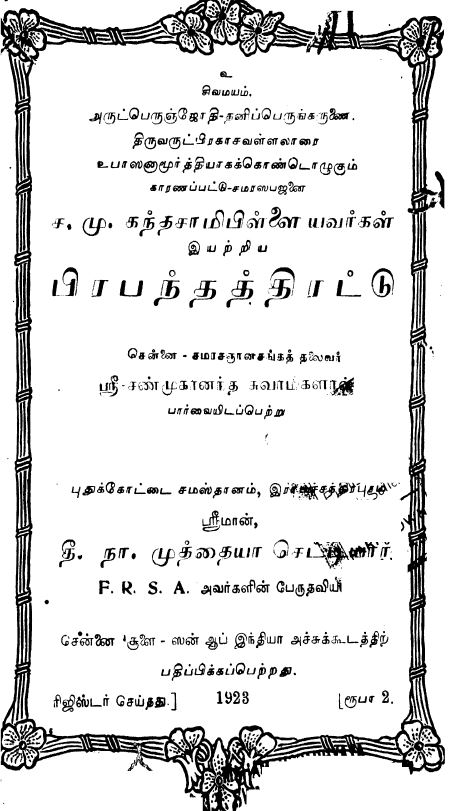 உ
சிவமயம்.
அருட்பெருஞ்ஜோதி-தனிப்பெருங்கருணை.
திருவருட்பிரகாசவள்ளலாரை
உபாஸனாமூர்த்தியாகக்கொண்டொழுகும்
காரணப்பட்டு-சமரஸபஜனை
ச. மு. கந்தசாமிபிள்ளை யவர்கள்
இயற்றிய
பிரபந்தத்திரட்டு
சென்னை - சமரசஞானசங்கத் தலைவர்
ஸ்ரீ-சண்முகானந்த சுவாமிகளால்
பார்வையிடப்பெற்று
புதுக்கோட்டை சமஸ்தானம்,
ஸ்ரீமான்,
தீ. நா. முத்தையா செட்டியார்,
F. R. S. A. அவர்களின் பேருதவியி
சென்னை சூளை - ஸன் ஆப் இந்தியா அச்சுக்கூடத்திற்
பதிப்பிக்கப்பெற்றது.
ரிஜிஸ்டர் செய்தது.] 1923 [ரூபா 2.